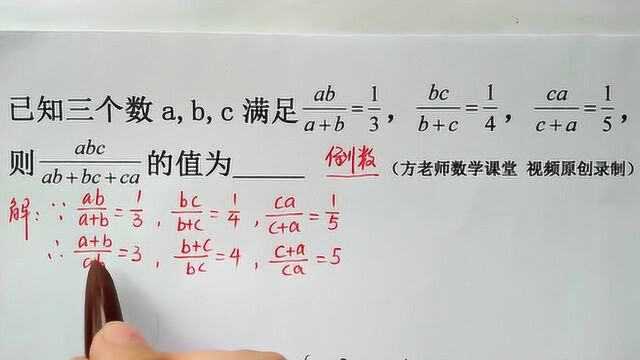 已知三个数 a,b,c 满足 ab/(a+b)=1/3, bc/(b+c)=1/4, ca/(c+a)=1/5,
则 abc/(ab+bc+ca) 的值为_____ 倒数 (方老师数学课堂 视频原创录制)
解: ∵ ab/(a+b)=1/3, bc/(b+c)=1/4, ca/(c+a)=1/5
∴ (a+b)/ab=3, (b+c)/bc=4, (c+a)/ca=5